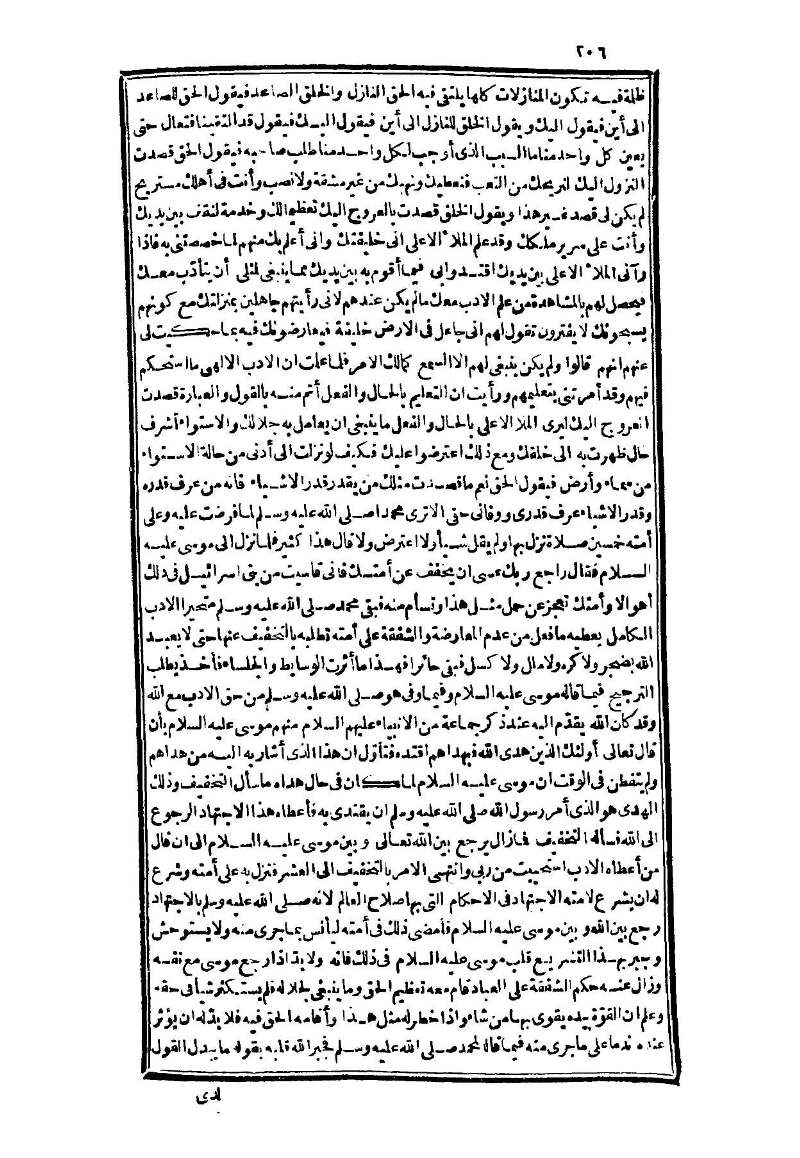 ٢٠٦
ظلمة فيه تكون المنازلات كلها يلتقى فيه الحق النازل والخلق الصاعد فيقول الحق للصاعد
الى أين فيقول اليك ويقول الخلق للنازل الى أين فيقول اليك فيقول قد التقينا فتعال حتى
يعين كل واحد منا ما السبب الذى أوجب لكل واحد منا طلب صاحبه فيقول الحق قصدت
النزول اليك لنريحك من التعب فنعطيك ونهبك من غير مشقة ولا نصب وأنت فى أهلك مستريح
لم يكن لى قصد غير هذا ويقول الخلق قصدت بالعروج اليك تعظيما لك وخدمة لنقف بين يديك
وأنت على سرير ملكك وقد علم الملأ الاعلى انى خليفتك وانى أعلم بك منهم لما خصصتنى به فاذا
رآنى الملأ الاعلى بين يديك اقتدوا بى فيما أقوم به بين يديك مما ينبغى لمثلى أن يتأدب معك
فيحصل لهم بالمشاهدة من علم الادب معك ما لم يكن عندهم لانى رأيتهم جاهلين بمنزلتك مع كونهم
يسبحونك لا يفترون تقول لهم انى جاعل فى الارض خليفة فيعارضونك فيه بما حكيت لى
عنهم انهم قالوا ولم يكن ينبغى لهم الا السمع كما لك الامر فلما علمت ان الادب الالهى ما استحكم
فيهم وقد أمرتنى بتعليمهم ورأيت ان التعليم بالحال والفعل أتم منه بالقول والعبارة قصدت
العروج اليك ليرى الملا الاعلى بالحال والفعل ما ينبغى ان يعامل به جلالك والاستواء أشرف
حال ظهرت به الى خلقك ومع ذلك اعترضوا عليك فكيف لو نزلت الى أدنى من حالة الاستواء
من سماء وأرض فيقول الحق نعم ما قصدت مثلك من يقدر قدر الاشياء فانه من عرف قدره
وقدر الاشياء عرف قدرى ووفانى حتى الا ترى محمدا صلى الله عليه وسلم لما فرضت عليه وعلى
أمته خمسين صلاة نزل بها ولم يقل شيأ ولا اعترض ولا قال هذا كثير فلما نزل الى موسى عليه
السلام فقال راجع ربك عسى ان يخفف عن أمتك فانى قاسيت من بنى اسرائيل فى ذلك
أهوالا وأمتك تعجز عن حمل مثل هذا وتسأم منه فبقى محمد صلى الله عليه وسلم متحيرا الادب
الكامل يعطيه ما فعل من عدم المعارضة والشفقة على أمته تطلبه بالتخفيف عنها حتى لا يعبد
الله بضجر ولا كره ولا مال ولا كسل فبقى حائرا فهذا ما أثرت الوسايط والجلساء فأخذ يطلب
الترجيح فيما قاله موسى عليه السلام وفيما وفى هو صلى الله عليه وسلم من حق الادب مع الله
وقد كان الله يقدم اليه عند ذكر جماعة من الانبياء عليهم السلام منهم موسى عليه السلام بأن
قال تعالى أولئك الذين هدى الله فبهداهم اقتده فتأول ان هذا الذى أشار به اليه من هداهم
ولم يتفطن فى الوقت ان موسى عليه السلام لما كان فى حال هداه ما سأل التخفيف وذلك
الهدى هو الذى أمر رسول الله صلى الله عليه وسلم ان يقتدى به فأعطاه هذا الاجتهاد الرجوع
الى الله فسأله التخفيف فما زال يرجع بين الله تعالى وبين موسى عليه السلام الى ان قال
من أعطاه الادب استحييت من ربى وانتهى الامر بالتخفيف الى العشر فنزل به على أمته وشرع
له ان يشرع لامته الاجتهاد فى الاحكام التى بها صلاح العالم لانه صلى الله عليه وسلم بالاجتهاد
رجع بين الله وبين موسى عليه السلام فأمضى ذلك فى أمته ليأنس بما جرى منه ولا يستوحش
وجبر بهذا التشريع قلب موسى عليه السلام فى ذلك فانه ولا بد اذا رجع موسى مع نفسه
وزال عنه حكم الشفقة على العباد قام معه تعظيم الحق وما ينبغى لجلاله فلم يستكثر شيأ فى حقه
وعلم ان القوة بيده يقوى بها من شاء واذا خطر له مثل هذا وأقامه الحق فيه فلا بد له ان يؤثر
عنده ندما على ما جرى منه فيما قاله لمحمد صلى الله عليه وسلم فجبر الله قلبه بقوله ما يبدل القول
لدى